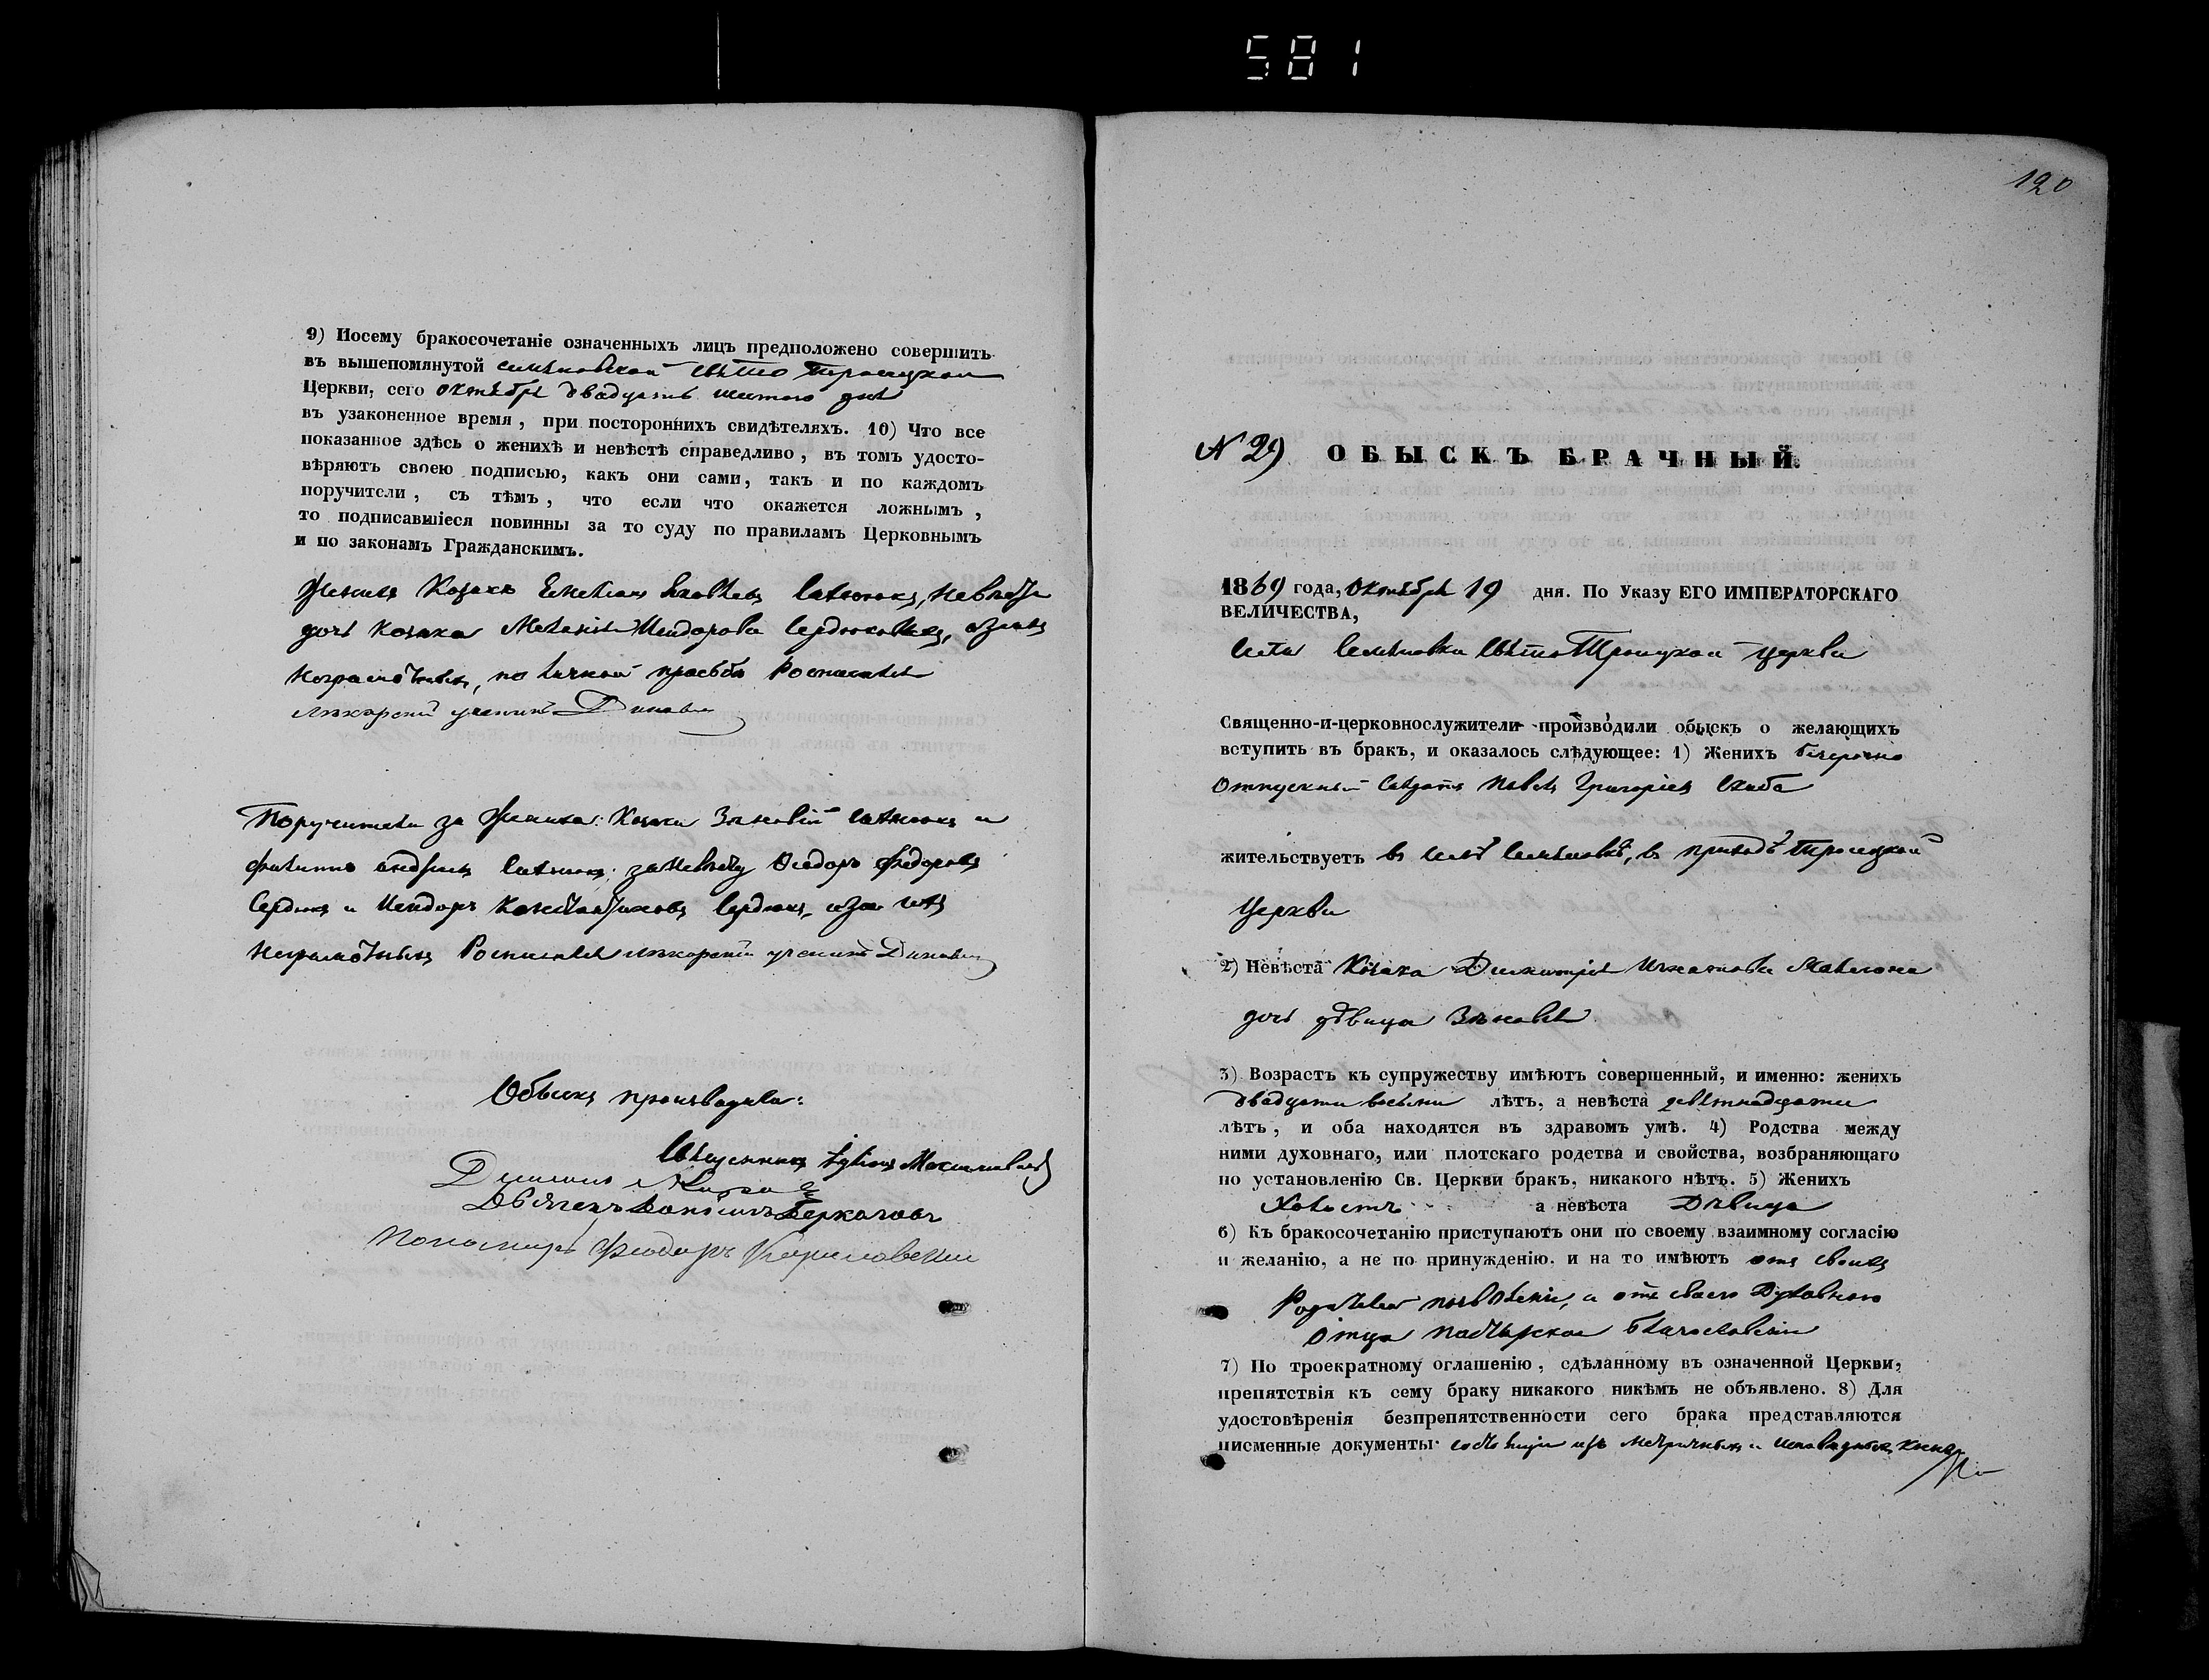 581
9) Посему бракосочетаніе означенныхъ лицъ предположено совершить
въ вышепомянутой Семяновской Свято Троицкой
Церкви, сего октября двадцать шестого дня
въ узаконенное время, при постороннихъ свидѣтеляхъ. 10) Что все
показанное здѣсь о женихѣ и невѣстѣ справедливо, въ томъ удосто-
вѣряютъ своею подписью, какъ они сами, такъ и по каждомъ
поручители, съ тѣмъ, что если что окажется ложнымъ,
то подписавшіеся повинны за то суду по правиламъ Церковнымъ
и по законамъ Гражданскимъ.
Женихъ Козакъ Емельянъ Яковлевъ невѣста
дочь козака Меланія
неграмотныхъ, по личной просьбѣ Росписался
ученикъ
Поручители за жениха: Козаки Зѣновій и
Филиппъ за невѣсту Ѳеодоръ Федоровъ
Сердюкъ и Исидоръ Константиновъ Сердюкъ, а за нихъ
неграмотныхъ Росписался ученикъ
Обыскъ производили:
Священникъ
Дьяченъ
Пономарь Феодоръ
120
N 29 ОБЫСКЪ БРАЧНЫЙ.
1869 года, Октября 19 дня. По Указу ЕГО ИМПЕРАТОРСКАГО
ВЕЛИЧЕСТВА,
села Семяновки Свято Троицкой церкви
Священно-и-церковнослужители производили обыскъ о желающихъ
вступить въ бракъ, и оказалось слѣдующее: 1) Женихъ безсрочно
отпускный Солдатъ Павелъ Григоріевъ Скиба
жительствуетъ въ селѣ Семяновкѣ, въ приходѣ Троицкой
Церкви
2) Невѣста Козака Димитрія Игнатова
дочь дѣвица Зѣновія
3) Возрастъ къ супружеству имѣютъ совершенный, и именно: женихъ
двадцати восьми лѣтъ, а невѣста девятнадцати
лѣтъ, и оба находятся въ здравомъ умѣ. 4) Родства между
ними духовнаго, или плотскаго родства и свойства, возбраняющаго
по установленію Св. Церкви бракъ, никакого нѣтъ. 5) Женихъ
Холостъ а невѣста Дѣвица
6) Къ бракосочетанію приступаютъ они по своему взаимному согласію
и желанію, а не по принужденію, и на то имѣютъ отъ своихъ
Родителей позволеніе, и отъ своего Духовного
отца пастырское благословеніе
7) По троекратному оглашенію, сдѣланному въ означенной Церкви,
препятствія къ сему браку никакого никѣмъ не объявлено. 8) Для
удостовѣренія безпрепятственности сего брака представляются
писменные документы: состоящіе изъ метричныхъ и исповѣдныхъ книгъ